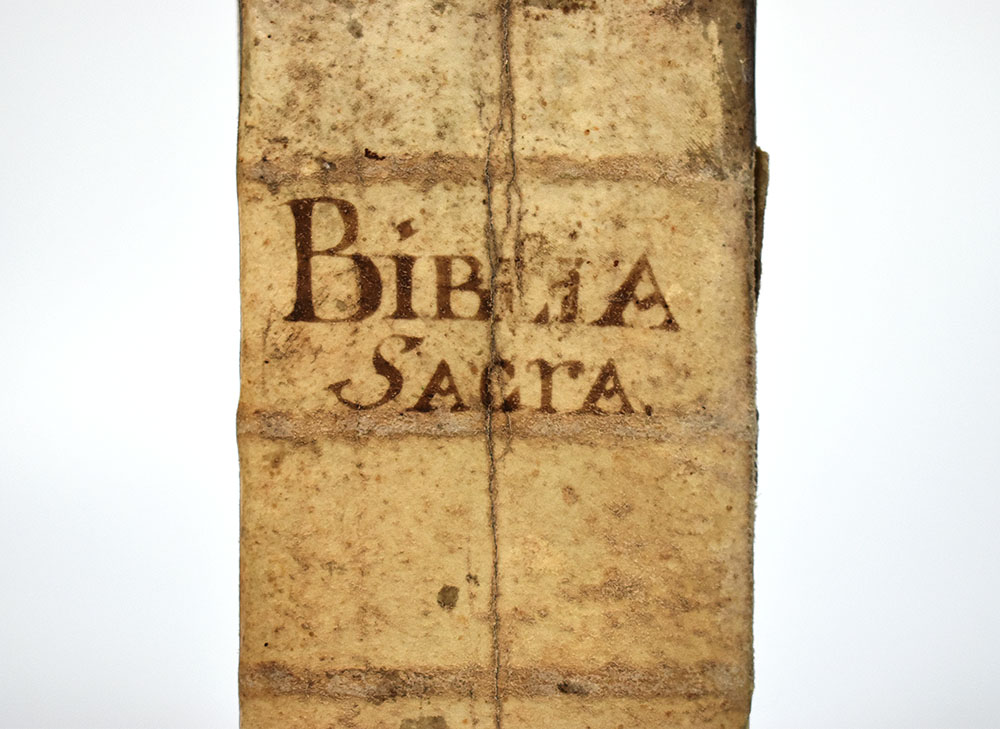 BiBLiA
SAcrA.